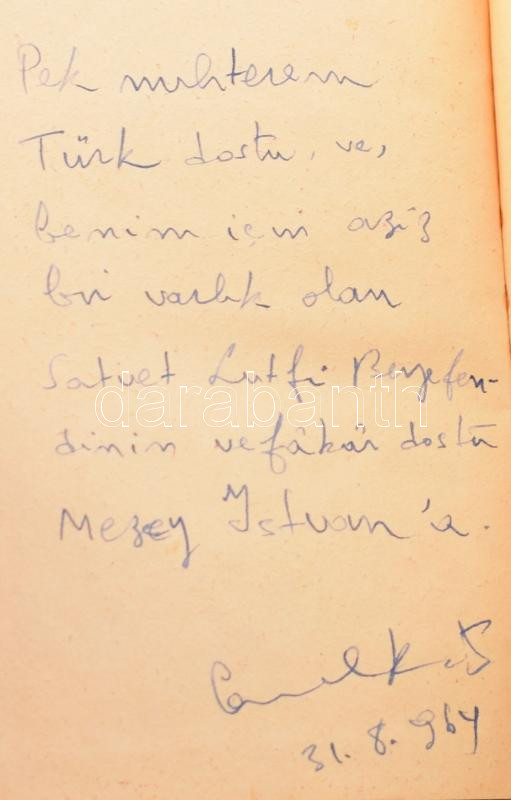 Pek muhterem
Türk dostu, ve,
benim için aziz
bir varlık olan
Satvet Lutfi Beyefen-
dinin vefâkâr dostu
Mezey Istvan'a.
darabanth
31.8.964